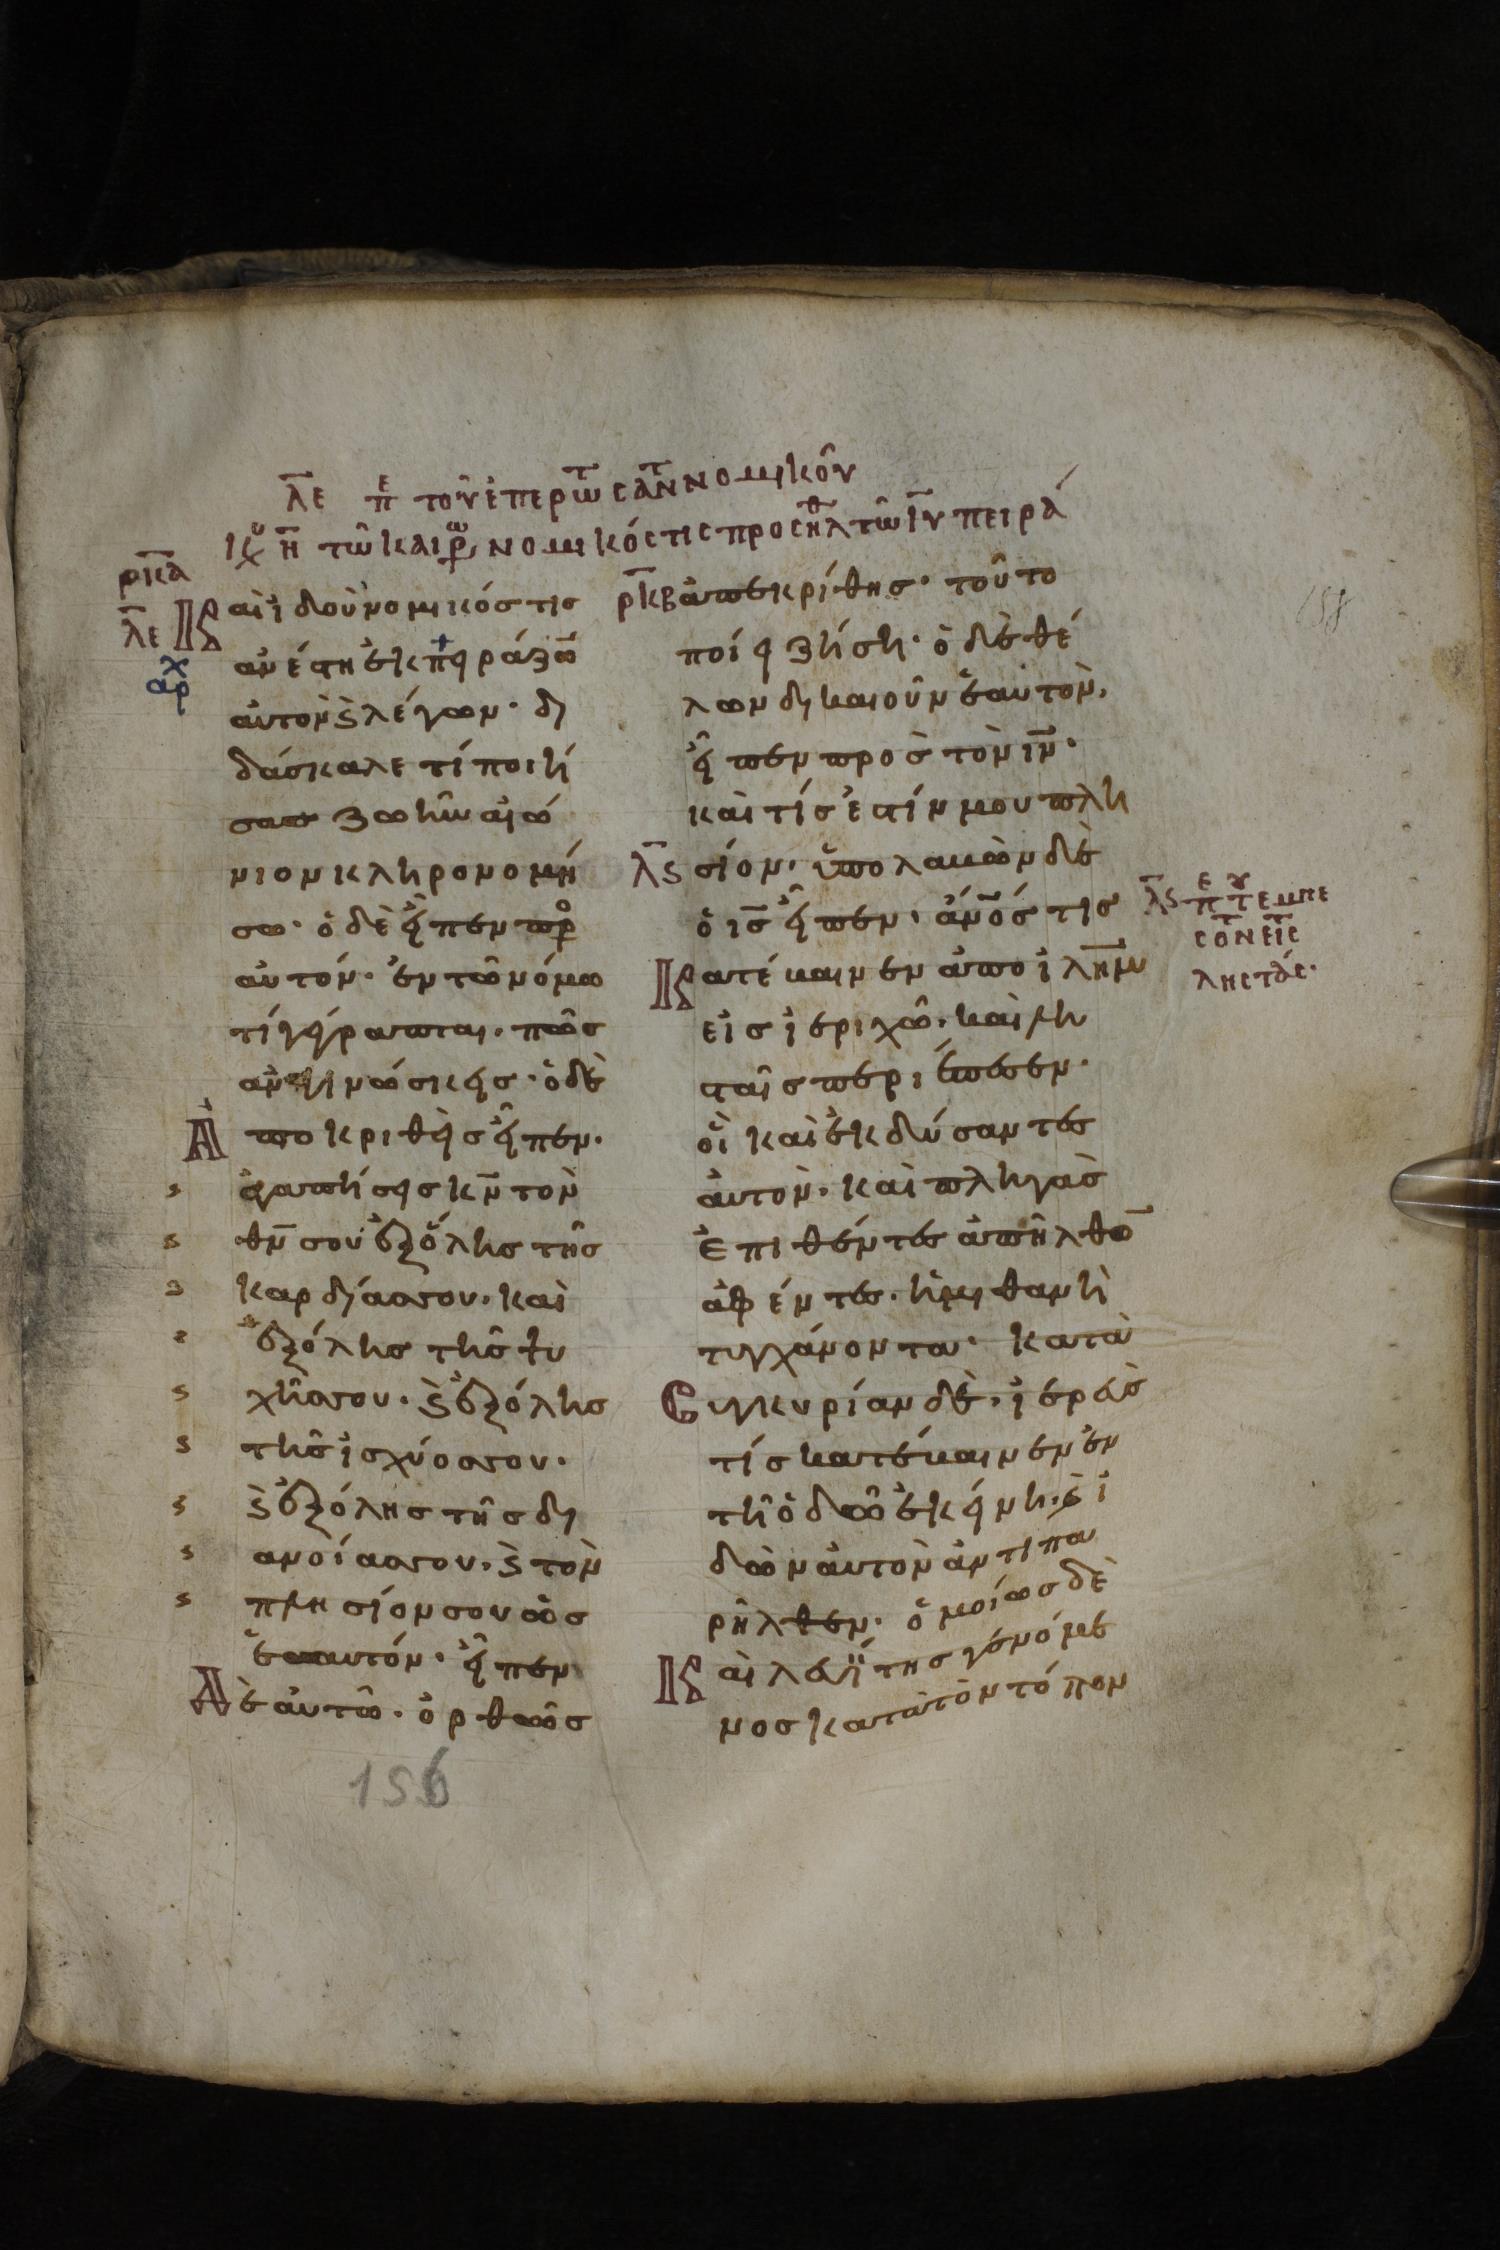 λε πε του επερωτ͞ησαντ͞ νομικου
τω καιρω νομικός τις προσηλθ τω ι͞υ πειρά
ρκα
λε
αρχ
Και ἰδοὺ νομικός τις
ἀνέστη ἐκπειράζω͞
αὐτὸν ϗ λέγων· δι
δάσκαλε τί ποιή
σας ζωὴν αἰώ
νιον κληρονομή
σω· ὁ δὲ εἶπεν πρὸ
αὐτόν· ἐν τῶ νόμω
τί γέγραπται· πῶς
ἀναγινώσκεις· ὁ δὲ
Ἀποκριθεὶς εἶπεν·
ἀγαπήσεις κ͞ν τὸν
θ͞ν σου ἐξ ὅλης τῆς
καρδίας σου· καὶ
ἐξ ὅλης τῆς ψυ
χῆς σου· ϗ ἐξ ὅλης
τῆς ἰσχύος σου·
ϗ ἐξ ὅλης τῆς δι
ανοίας σου· ϗ τὸν
πλησίον σου ὡς
ἑαυτόν· εἶπεν
Δὲ αὐτῶ· ὀρθῶς
156
ρκβ ἀπεκρίθης· τοῦτο
ποίει ζήση· ὁ δὲ θέ
λων δικαιοῦν ἑαυτὸν,
εἶπεν πρὸς τὸν ι͞ν·
καὶ τίς ἐστίν μου πλη
λϛ σίον· ὑπολαβὼν δὲ
ὁ ι͞ς εἶπεν· ἄν͞ος τις
Κατέβαινεν ἀπὸ ἰλ͞ημ
εἰς ἰεριχῶ· καὶ λη
σταῖς περιέπεσεν·
οἳ καὶ ἐκδύσαντες
αὐτὸν· καὶ πληγὰς
ἐπιθέντες ἀπῆλθο͞
ἀφέντες· ἡμιθανῆ
τυγχάνοντα· κατὰ
Συγκυρίαν δὲ· ἱερεὺς
τίς κατέβαινεν ἐν
τῆ ὁδῶ ἐκείνη· ϗ ἰ
δὼν αὐτὸν ἀντιπα
ρῆλθεν· ὁμοίως δὲ
Καὶ λευΐτης γενόμε
νος κατὰ τὸν τόπον
λϛ πε του εμπε
σοντ εις τ
ληστάς·